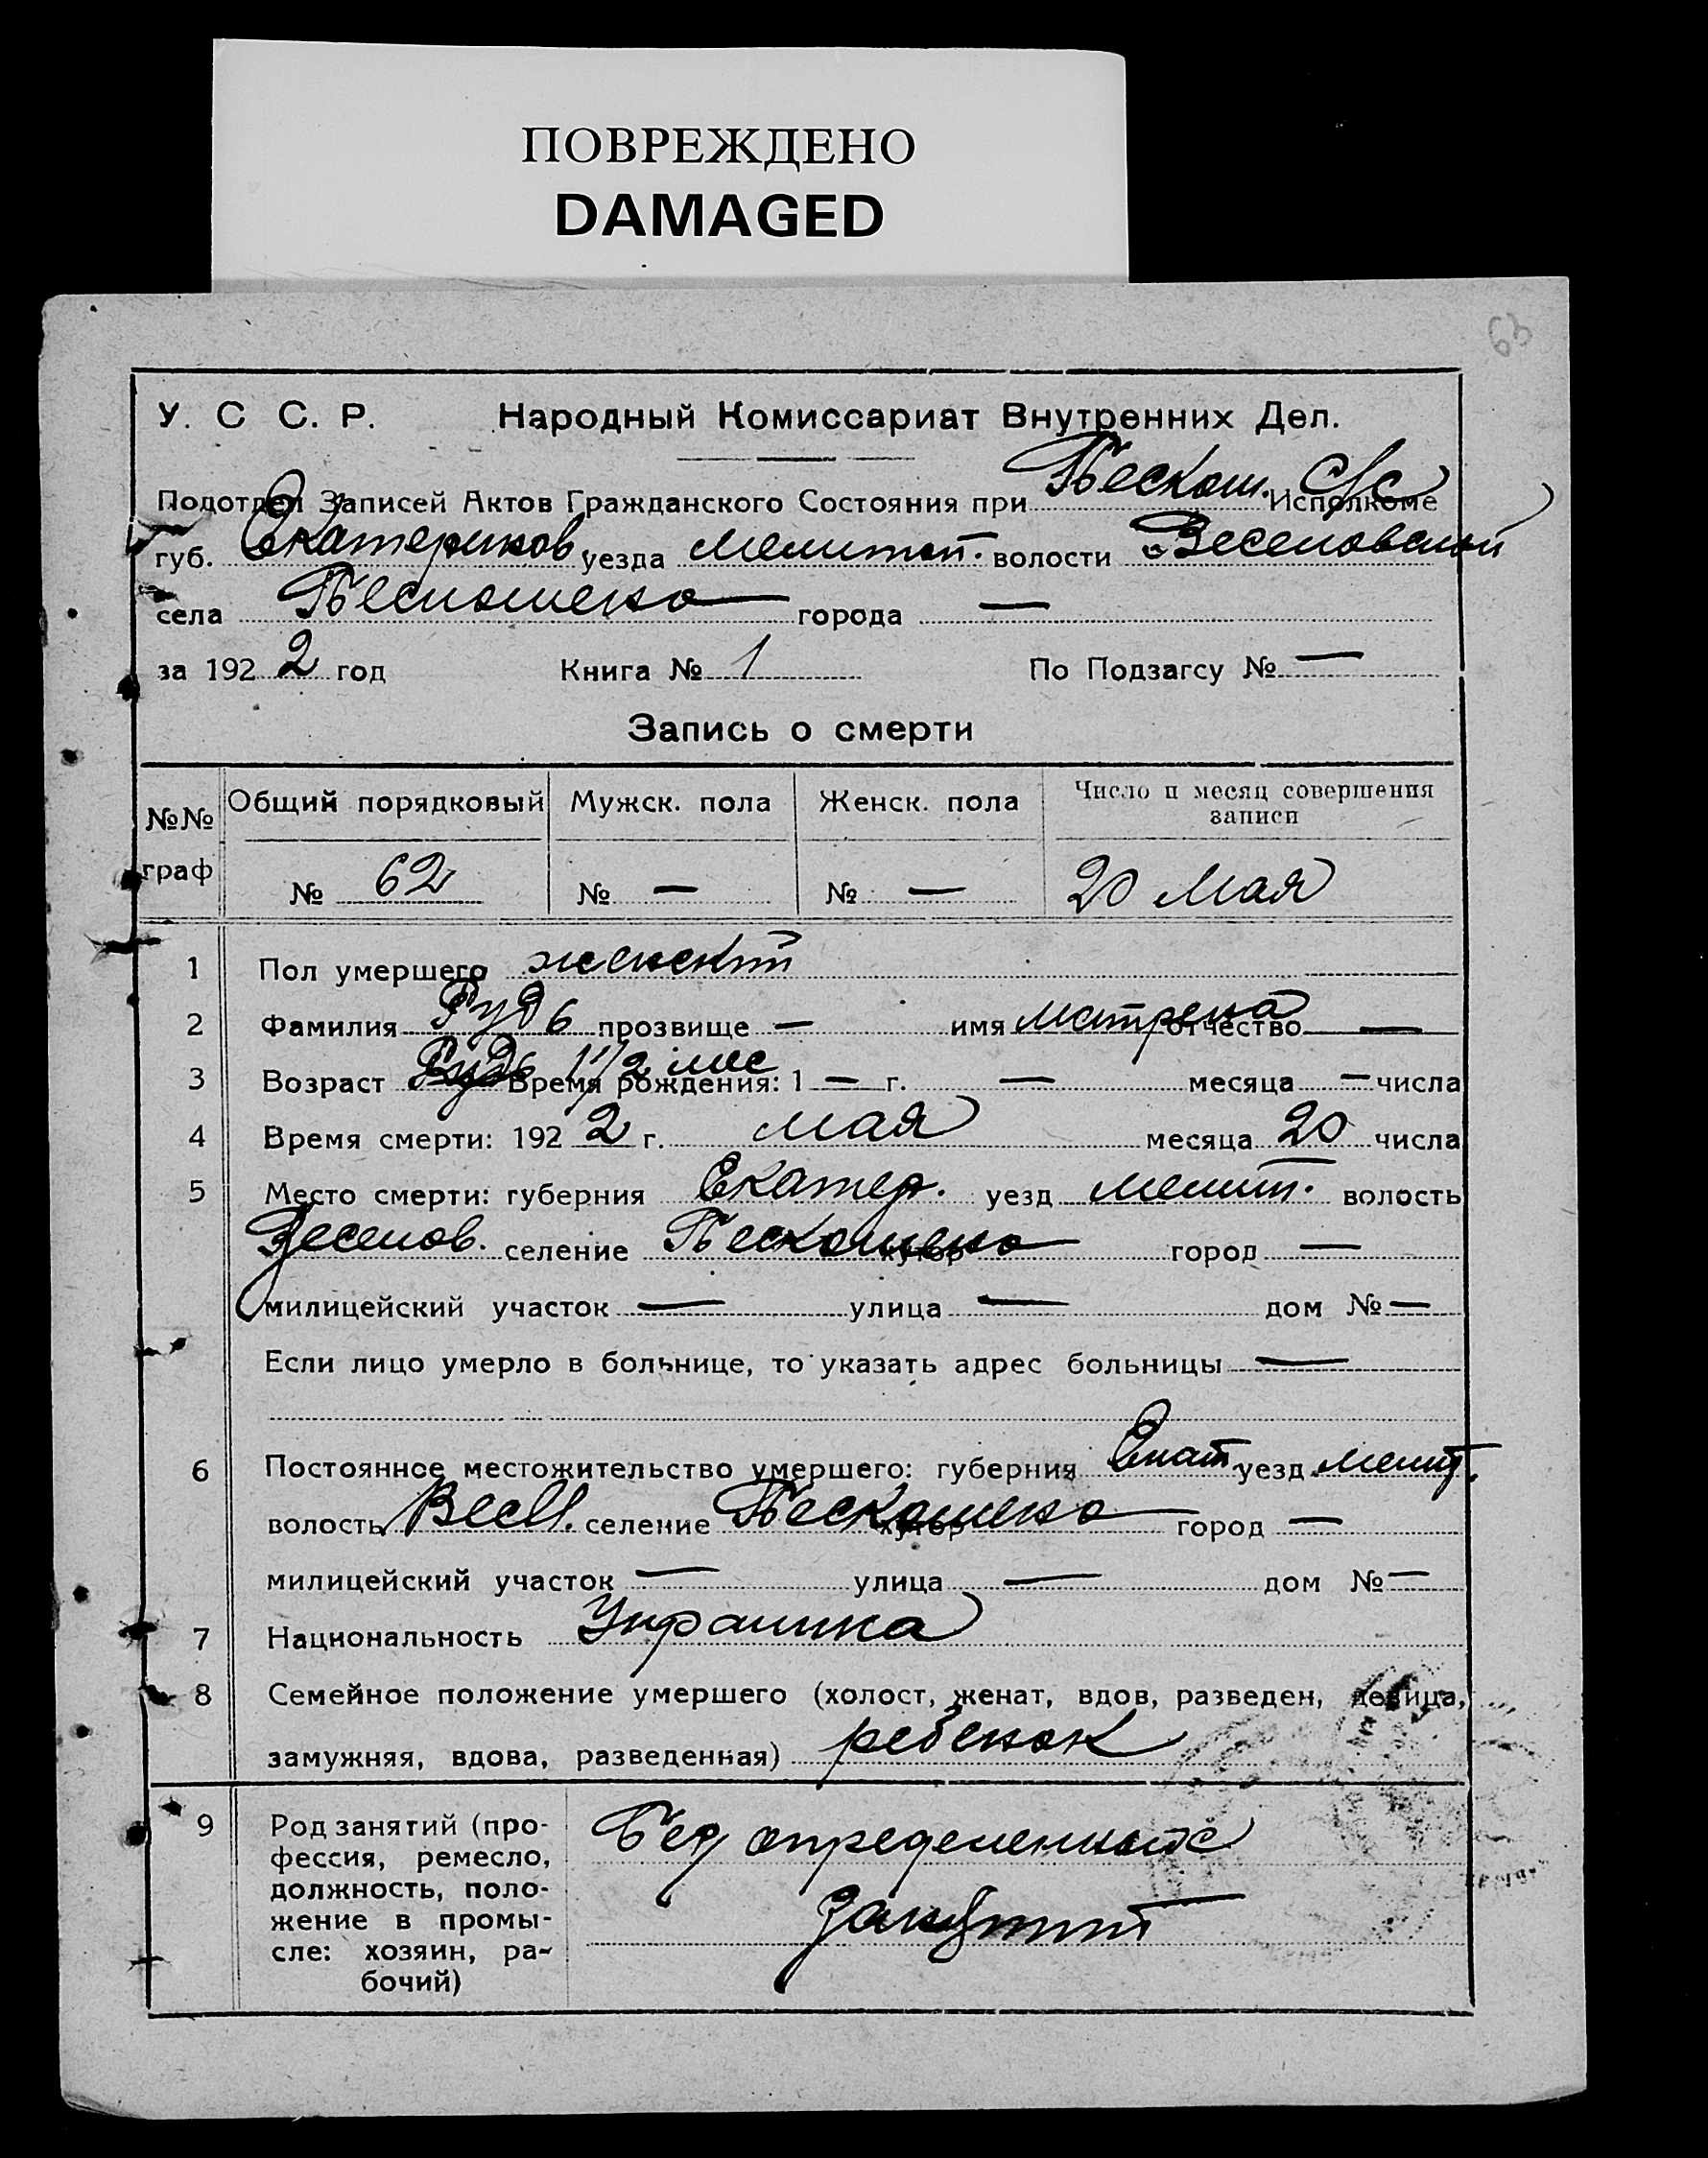 ПОВРЕЖДЕНО
DAMAGED
63
У. С С. Р. Народный Комиссариат Внутренних Дел.
Подотдел Записей Актов Гражданского Состояния при Бескош. С/С Исполкоме
губ. Екатеринов уезда Мелитоп. волости Веселовской
села Бескошено города —
за 1922 год Книга № 1 По Подзагсу № —
Запись о смерти
№№ граф Общий порядковый Мужск. пола Женск. пола Число и месяц совершения записи
№ 62 № — № — 20 Мая
1 Пол умершего женский
2 Фамилия Рудь прозвище — имя Матрена отчество —
3 Возраст Рудь 1 1/2 мес Время рождения: 1 — г. — месяца — числа
4 Время смерти: 1922 г. мая месяца 20 числа
5 Место смерти: губерния Екатер. уезд Мелит. волость
Веселов. селение Бескошено хутор город —
милицейский участок — улица — дом № —
Если лицо умерло в больнице, то указать адрес больницы —
6 Постоянное местожительство умершего: губерния Екат. уезд Мелит.
волость Весел. селение Бескошено хутор город —
милицейский участок — улица — дом № —
7 Национальность Украинка
8 Семейное положение умершего (холост, женат, вдов, разведен, девица,
замужняя, вдова, разведенная) ребенок
9 Род занятий (про-
фессия, ремесло,
должность, поло-
жение в промы-
сле: хозяин, ра-
бочий)
Без определенных
занятий